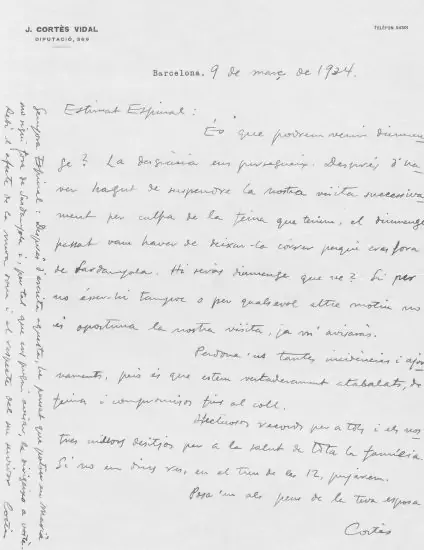 J. CORTÈS VIDAL
DIPUTACIÓ, 369
TELÈFON
Barcelona, 9 de març de 1934.
Estimat Espinal:
És que podrem venir diumen-
ge? La desgràcia ens persegueix. Després d'ha-
ver hagut de suspendre la nostra visita successiva-
ment per culpa de la feina que tenim, el diumenge
passat vam haver de deixar-la córrer perquè eres fora
de Sardanyola. Hi seràs diumenge que ve? Si per
no ésser-hi tampoc o per qualsevol altre motiu no
és oportuna la nostra visita, ja m'avisaràs.
Perdona'ns tantes incidències i ajor-
naments, però és que estem vertaderament atabalats, de
feina i compromisos fins al coll.
Afectuosos records per a tots i els nos-
tres millors desitjos per a la salut de tota la família.
Si no em dius res, en el tren de les 12, pujarem.
Posa'm als peus de la teva esposa
Cortès
Senyora Espinal: Després d'escrita aquesta, he pensat que potser en Marià
no sigui fora de Sardanyola i, per tal que ens pugueu avisar, la dirigeixo a vostè.
Rebi l'afecte de la meva dona i el respecte del seu servidor Cortès